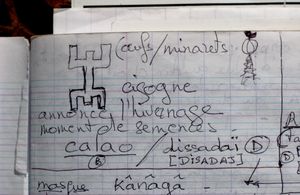 (œufs / minarets
cigogne
annonce l'hivernage
moment de semences
calao / dissadaï (D)
(B) [DISADAJ]
masque kãnãgã